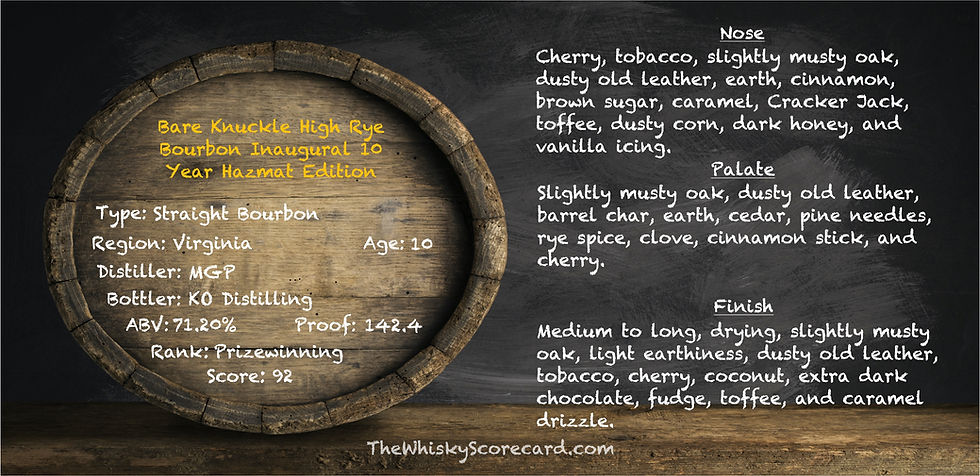 Bare Knuckle High Rye
Bourbon Inaugural 10
Year Hazmat Edition
Type: Straight Bourbon
Region: Virginia Age: 10
Distiller: MGP
Bottler: KO Distilling
ABV: 71.20% Proof: 142.4
Rank: Prizewinning
Score: 92
Nose
Cherry, tobacco, slightly musty oak,
dusty old leather, earth, cinnamon,
brown sugar, caramel, Cracker Jack,
toffee, dusty corn, dark honey, and
vanilla icing.
Palate
Slightly musty oak, dusty old leather,
barrel char, earth, cedar, pine needles,
rye spice, clove, cinnamon stick, and
cherry.
Finish
Medium to long, drying, slightly musty
oak, light earthiness, dusty old leather,
tobacco, cherry, coconut, extra dark
chocolate, fudge, toffee, and caramel
drizzle.
TheWhiskyScorecard.com